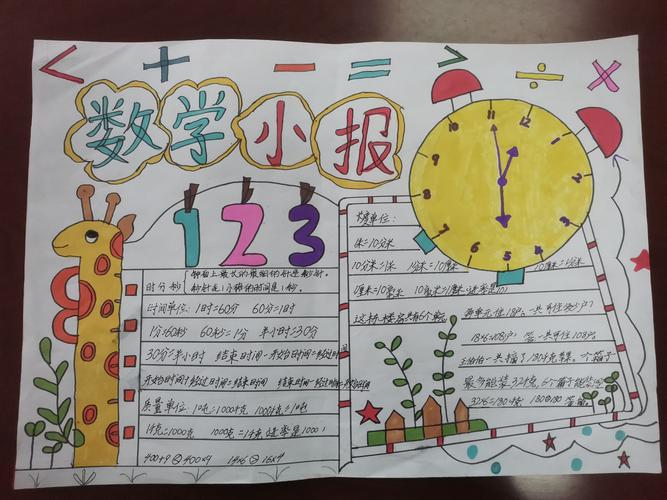 < + − = > ÷ ×
数学小报
1 2 3
12 1 2 3 4 5 6 7 8 9 10 11
时分秒
钟面上最长的最细的针是秒针。
秒针走1小格的时间是1秒。
时间单位:1时=60分 60分=1时
1分=60秒 60秒=1分 半小时=30分
30分=半小时 结束时间-开始时间=经过时间
开始时间+经过时间=结束时间 结束时间-经过时间=开始时间
质量单位:1吨=1000千克 1000千克=1吨
1千克=1000克 1000克=1千克 进率是1000
400+9 400×9 14×6 16×4
长度单位:
1米=10分米
10分米=1米 1分米=10厘米 10厘米=1分米
1厘米=10毫米 10毫米=1厘米 进率是10
这栋楼房共有6个单元
每单元住18户,一共可住多少户?
18×6=108户 答:一共可住108户。
一共摘了180千克 一个箱子
最多能装32千克,6个箱子能装
32×6=